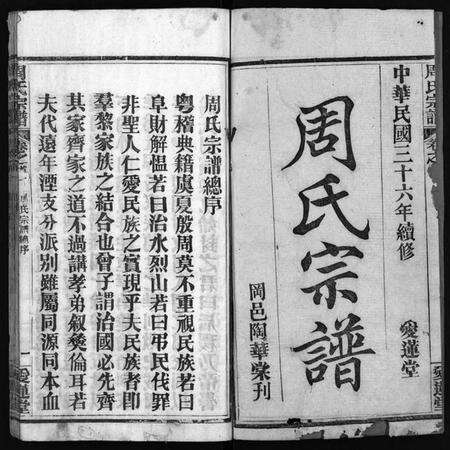 周氏宗譜
中華民國三十六年續修
愛蓮堂
周氏宗譜
岡邑陶華彙刊
愛蓮堂
周氏宗譜總序
粵稽典籍虞夏殷周莫不重視民族若曰
阜財解慍若曰治水烈山若曰弔民伐罪
非聖人仁愛民族之實現乎夫民族者即
羣黎家族之結合也曾子謂治國必先齊
其家齊家之道不過講孝弟叙彝倫耳若
夫代遠年湮支分派別雖屬同源同本血
周氏宗譜
周氏宗譜總序
一
愛蓮堂